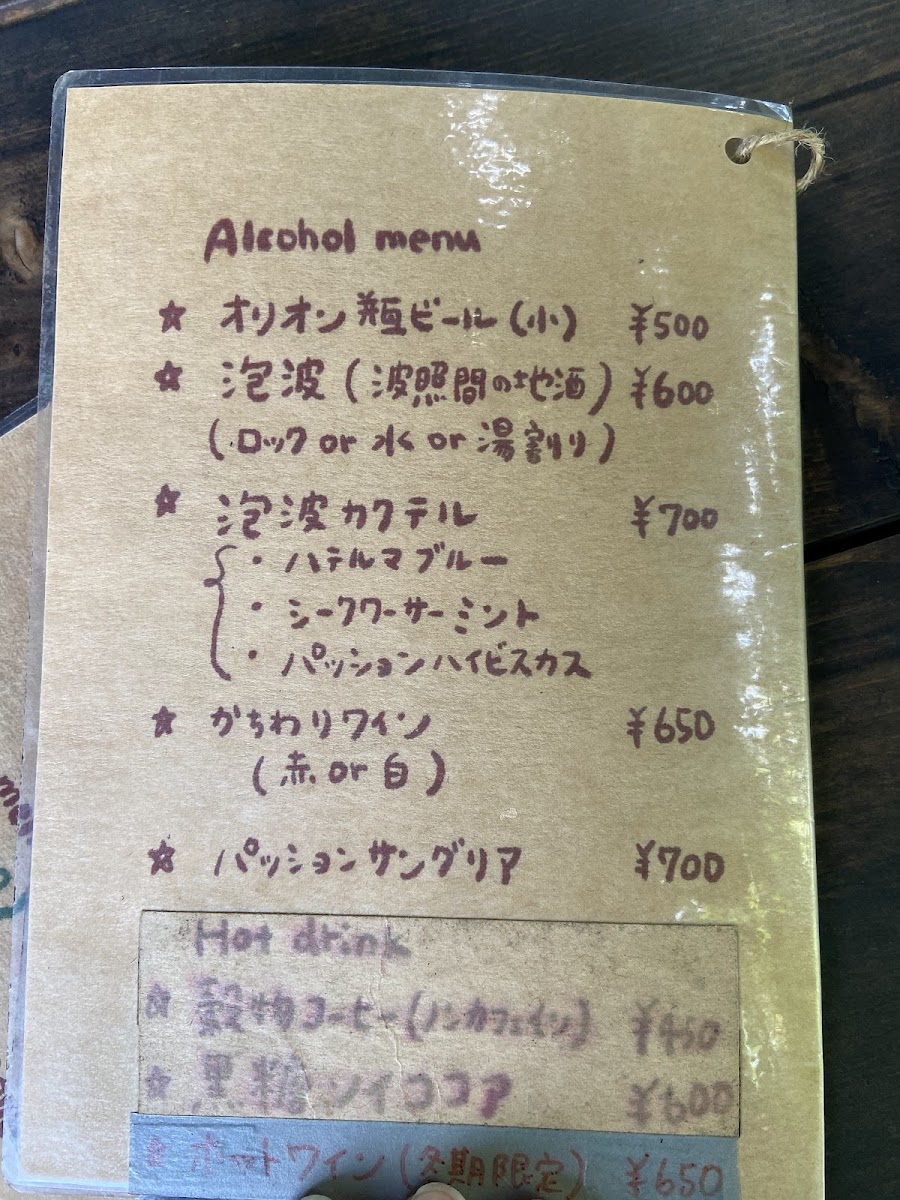 Alcohol menu
☆ オリオン瓶ビール(小) ¥500
☆ 泡波(波照間の地酒) ¥600
(ロック or 水 or 湯割り)
☆ 泡波カクテル ¥700
・ハテルマブルー
・シークワーサーミント
・パッションハイビスカス
☆ かちわりワイン ¥650
(赤 or 白)
☆ パッションサングリア ¥700
Hot drink
☆ 穀物コーヒー(ノンカフェイン) ¥450
☆ 黒糖ソイココア ¥600
☆ ホットワイン(冬期限定) ¥650